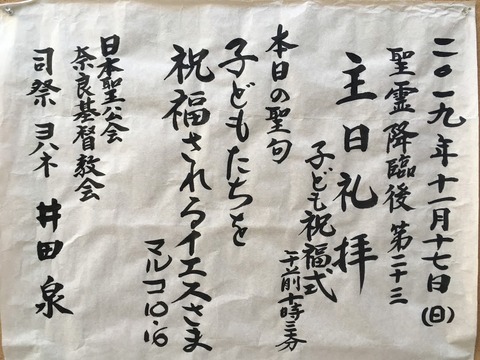 二〇一九年十一月十七日(日)
聖霊降臨後 第二十三
主日礼拝
子ども祝福式
午前十時三〇分
本日の聖句
子どもたちを
祝福されるイエスさま
マルコ10・16
日本聖公会
奈良基督教会
司祭 ヨハネ 井田 泉